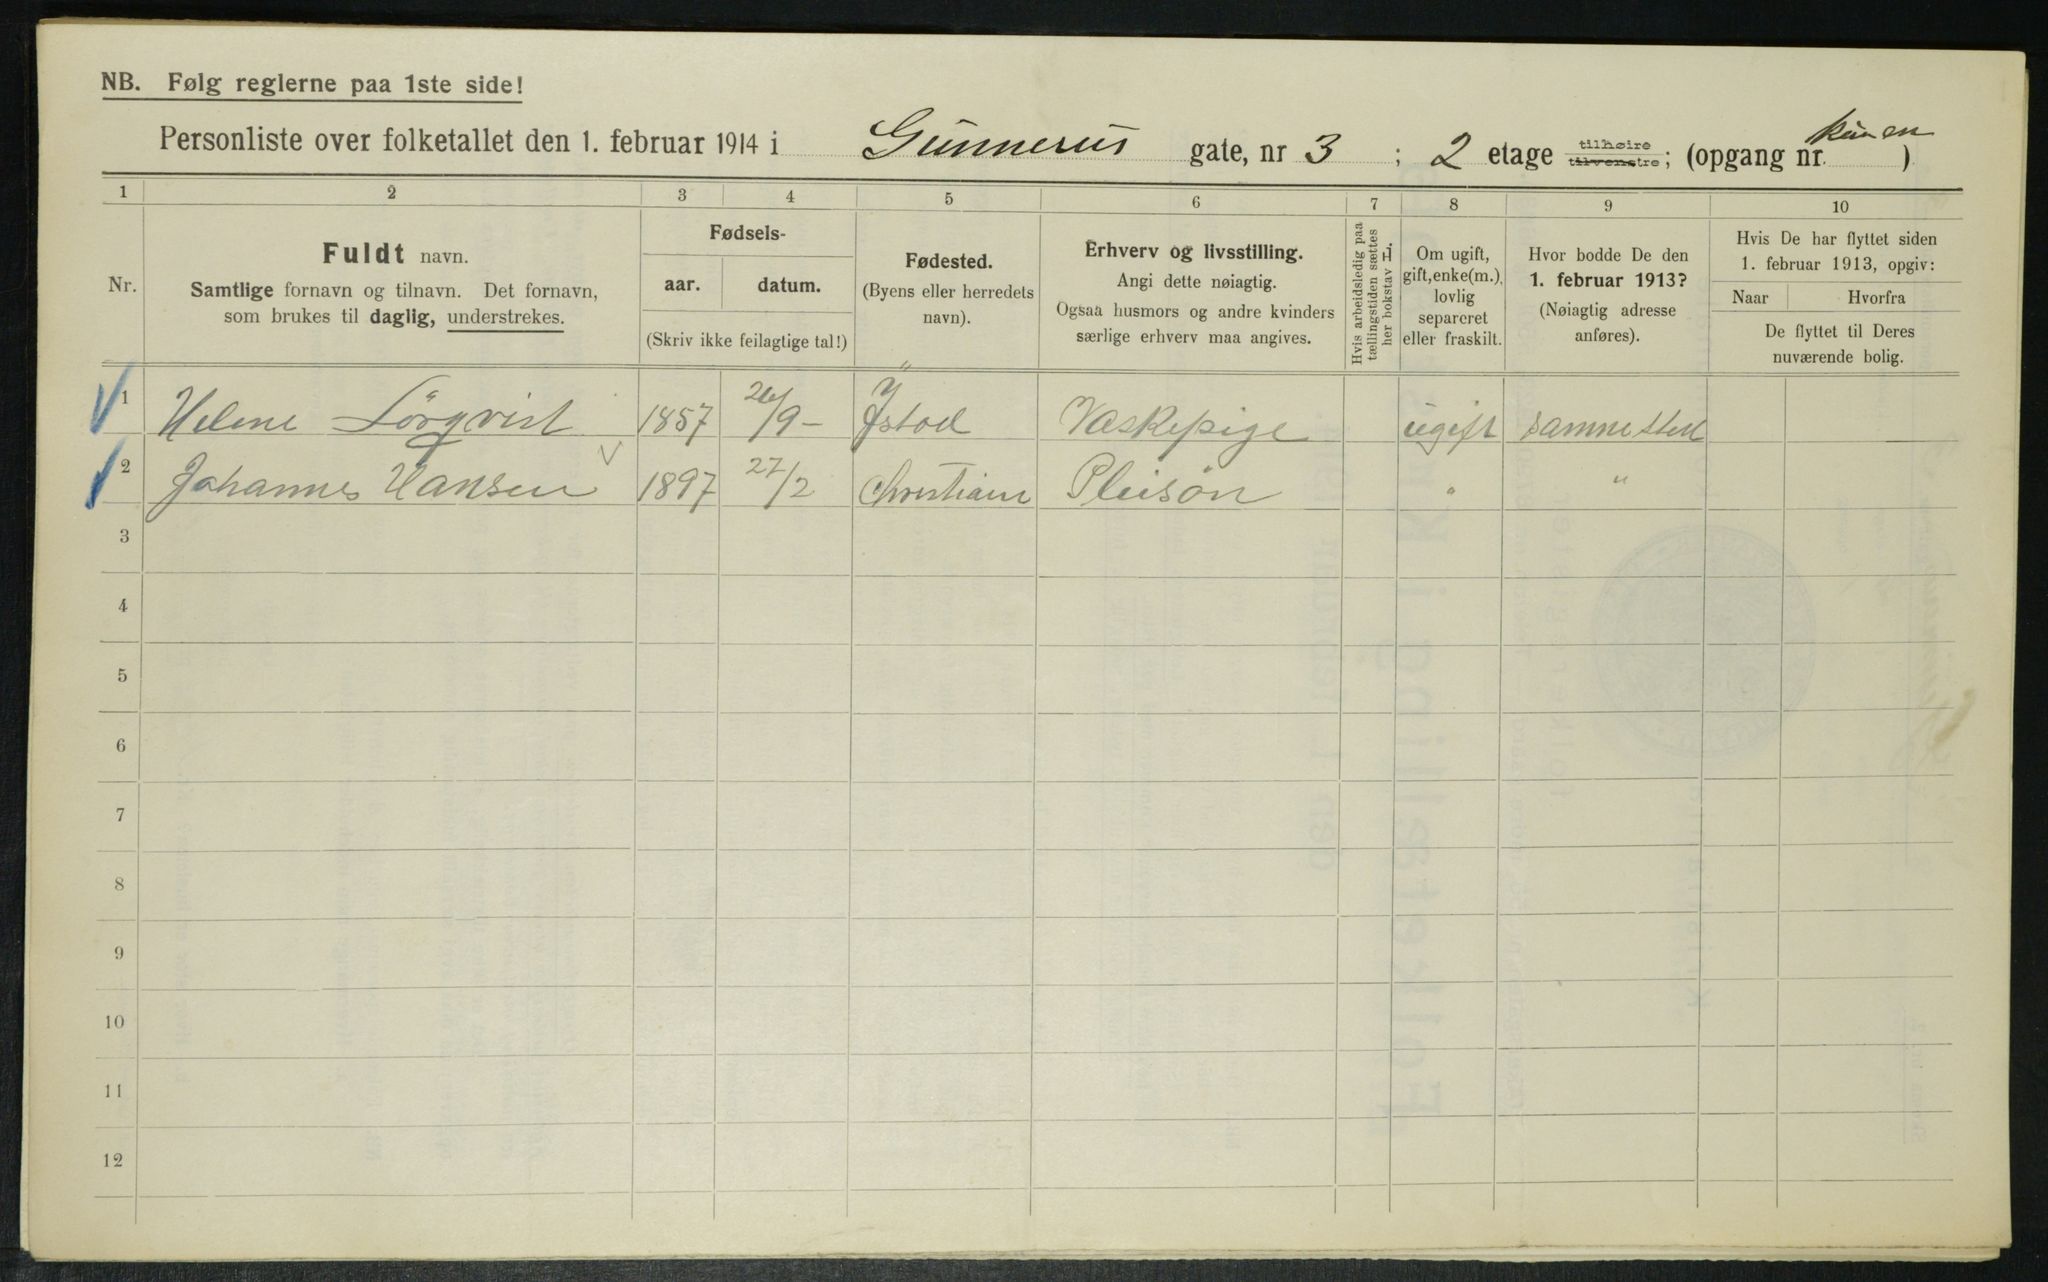 NB. Følg reglerne paa 1ste side!
Personliste over folketallet den 1. februar 1914 i Gunnerus gate, nr 3 ; 2 etage tilhøire tilvenstre; (opgang nr. )
1 2 3 4 5 6 7 8 9 10
Nr.
Fuldt navn.
Samtlige fornavn og tilnavn. Det fornavn,
som brukes til daglig, understrekes.
Fødsels-
aar. datum.
(Skriv ikke feilagtige tal!)
Fødested.
(Byens eller herredets
navn).
Erhverv og livsstilling.
Angi dette nøiagtig.
Ogsaa husmors og andre kvinders
særlige erhverv maa angives.
Hvis arbeidsledig paa
tællingstiden sættes
her bokstav L.
Om ugift,
gift, enke(m.),
lovlig
separeret
eller fraskilt.
Hvor bodde De den
1. februar 1913?
(Nøiagtig adresse
anføres).
Hvis De har flyttet siden
1. februar 1913, opgiv:
Naar Hvorfra
De flyttet til Deres
nuværende bolig.
1 Helene Lörqvist 1857 26/9- Ystad Vaskepige ugift samme sted
2 Johannes Hansen 1897 27/2 Christiania Pleisön " "
3
4
5
6
7
8
9
10
11
12